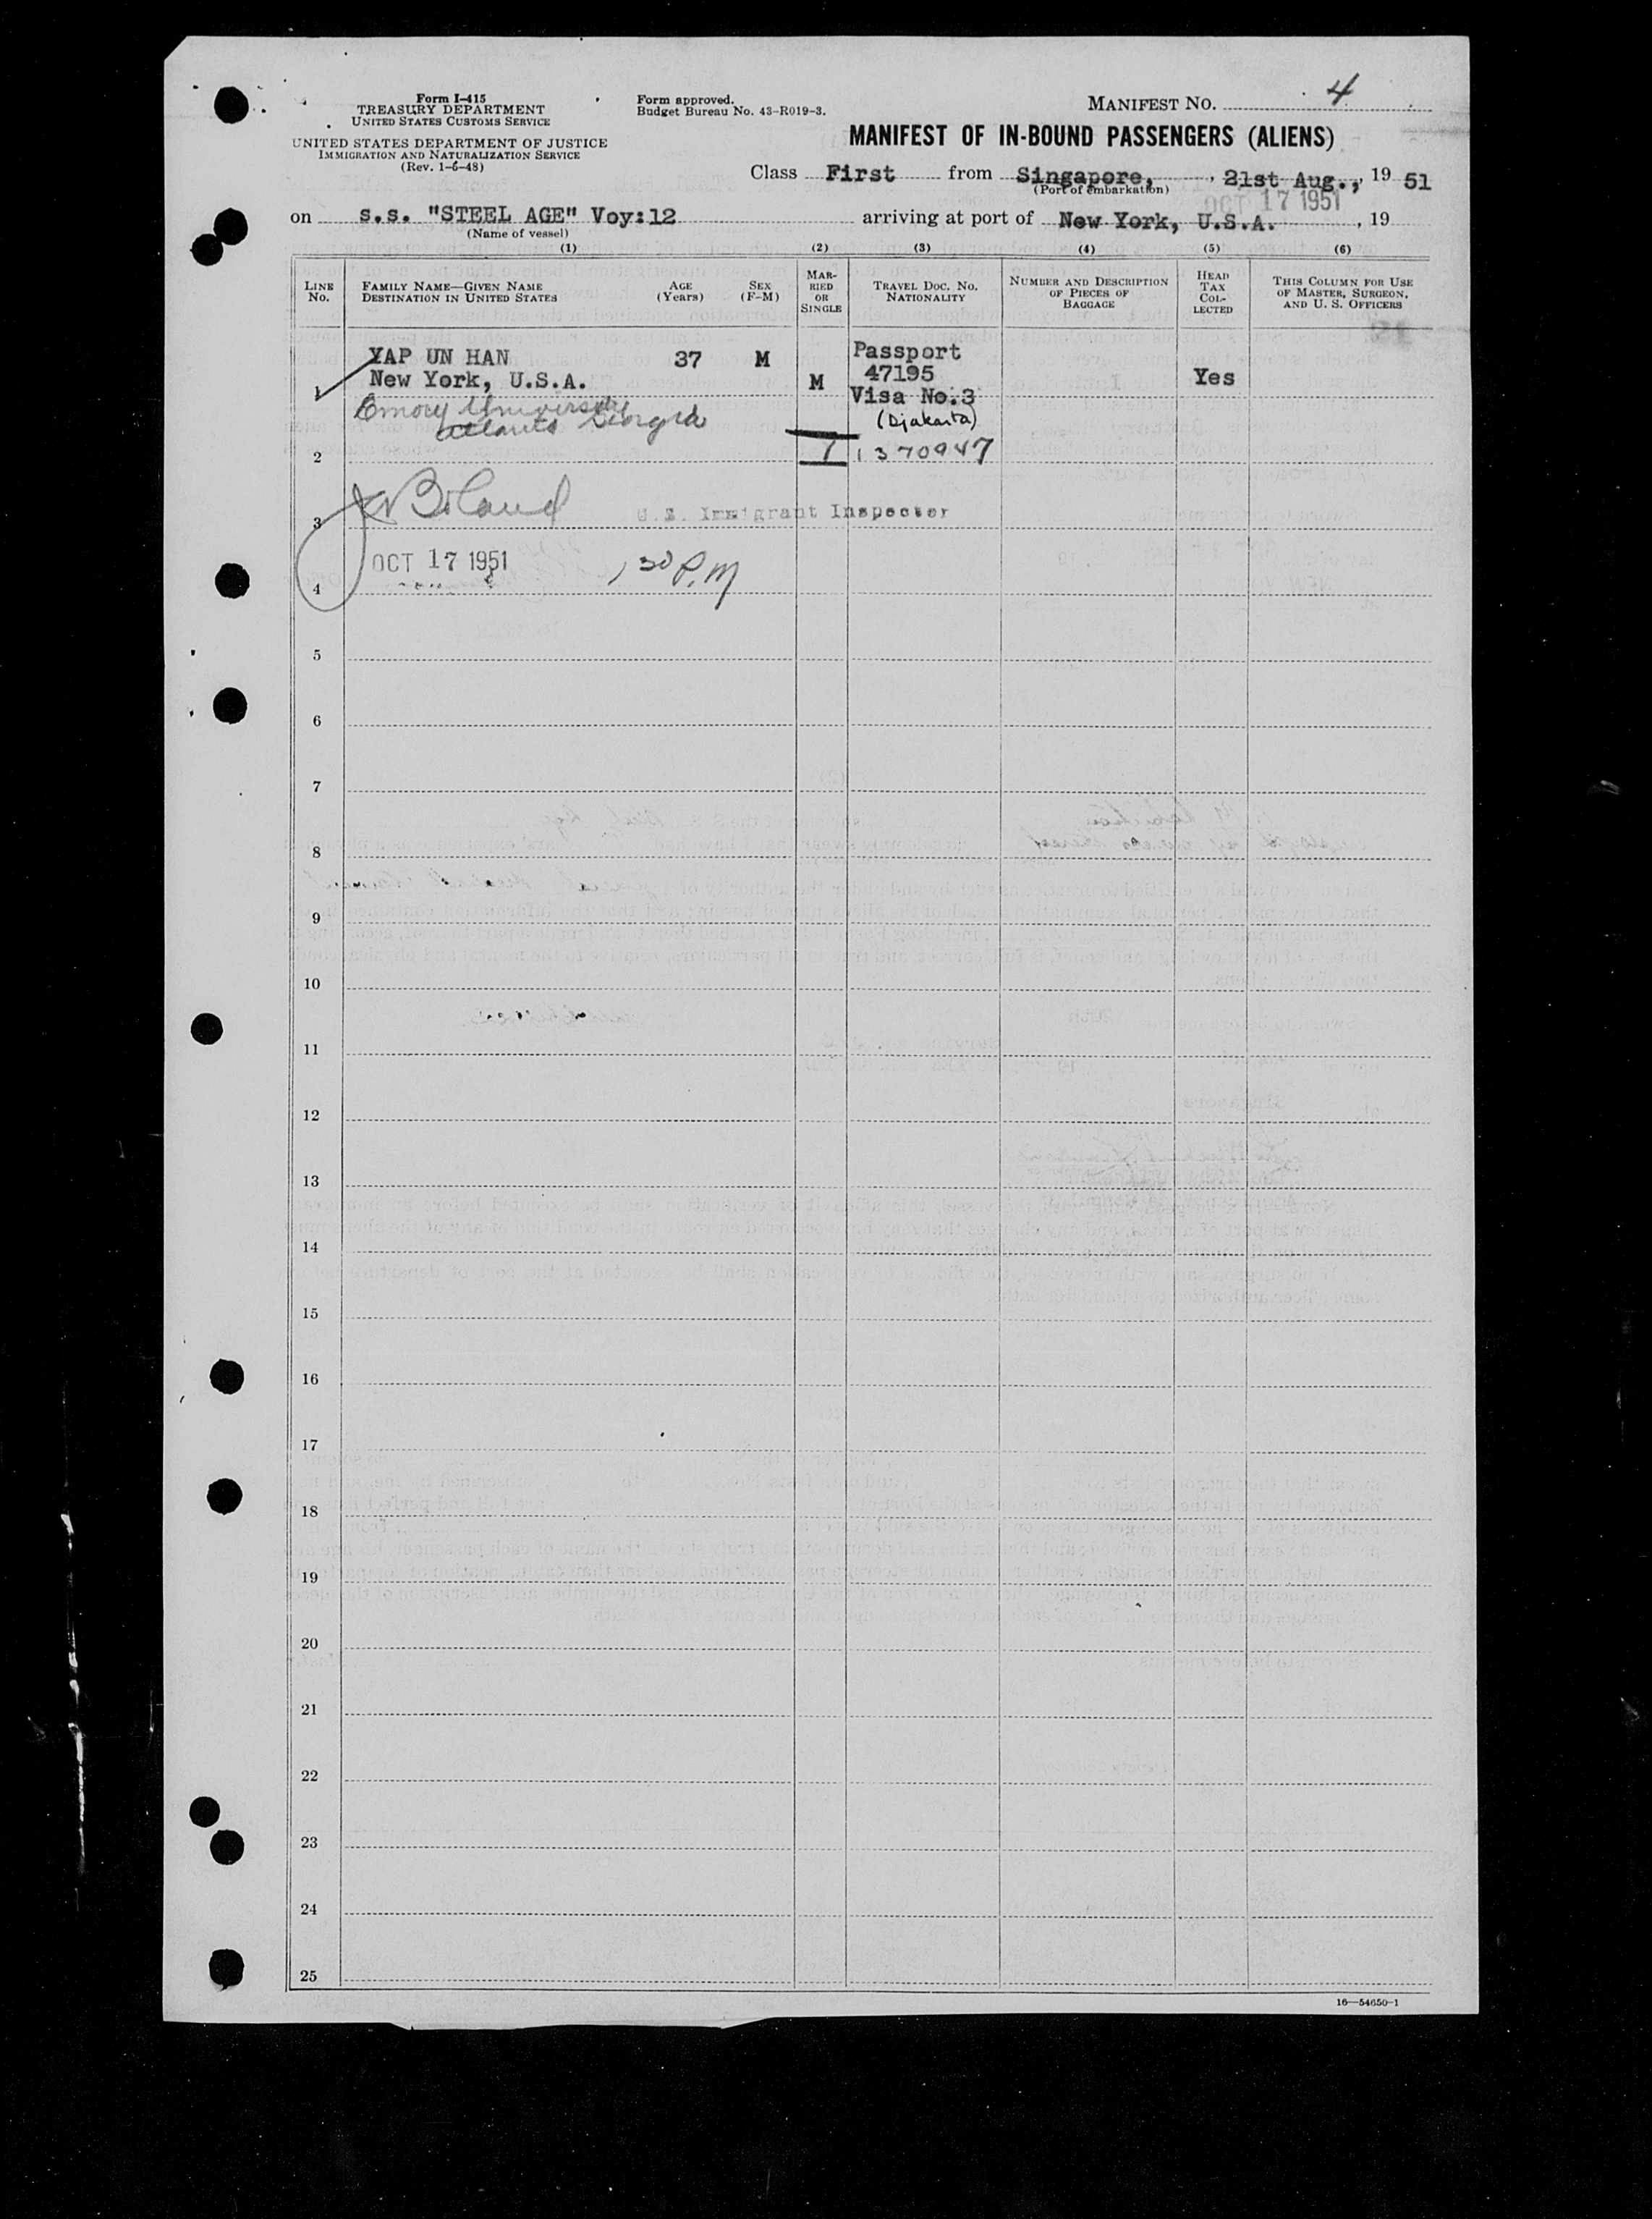 Form I-415
TREASURY DEPARTMENT
UNITED STATES CUSTOMS SERVICE
UNITED STATES DEPARTMENT OF JUSTICE
IMMIGRATION AND NATURALIZATION SERVICE
(Rev. 1-6-48)
Form approved.
Budget Bureau No. 43-R019-3.
MANIFEST NO. 4
MANIFEST OF IN-BOUND PASSENGERS (ALIENS)
Class First from Singapore, , 21st Aug., 19 51
(Port of embarkation)
OCT 17 1951
on s.s. "STEEL AGE" Voy:12 arriving at port of New York, U.S.A. , 19
(Name of vessel)
(1) (2) (3) (4) (5) (6)
LINE No.
FAMILY NAME—GIVEN NAME
DESTINATION IN UNITED STATES
AGE (Years)
SEX (F-M)
MARRIED OR SINGLE
TRAVEL DOC. NO.
NATIONALITY
NUMBER AND DESCRIPTION OF PIECES OF BAGGAGE
HEAD TAX COLLECTED
THIS COLUMN FOR USE OF MASTER, SURGEON, AND U. S. OFFICERS
YAP UN HAN 37 M Passport
New York, U.S.A. M 47195 Yes
Visa No.3
Emory University (Djakarta)
Atlanta Georgia
2 1 1370947
3 U.S. Immigrant Inspector
OCT 17 1951 1 30 P.M
4
5
6
7
8
9
10
11
12
13
14
15
16
17
18
19
20
21
22
23
24
25
16—54650-1